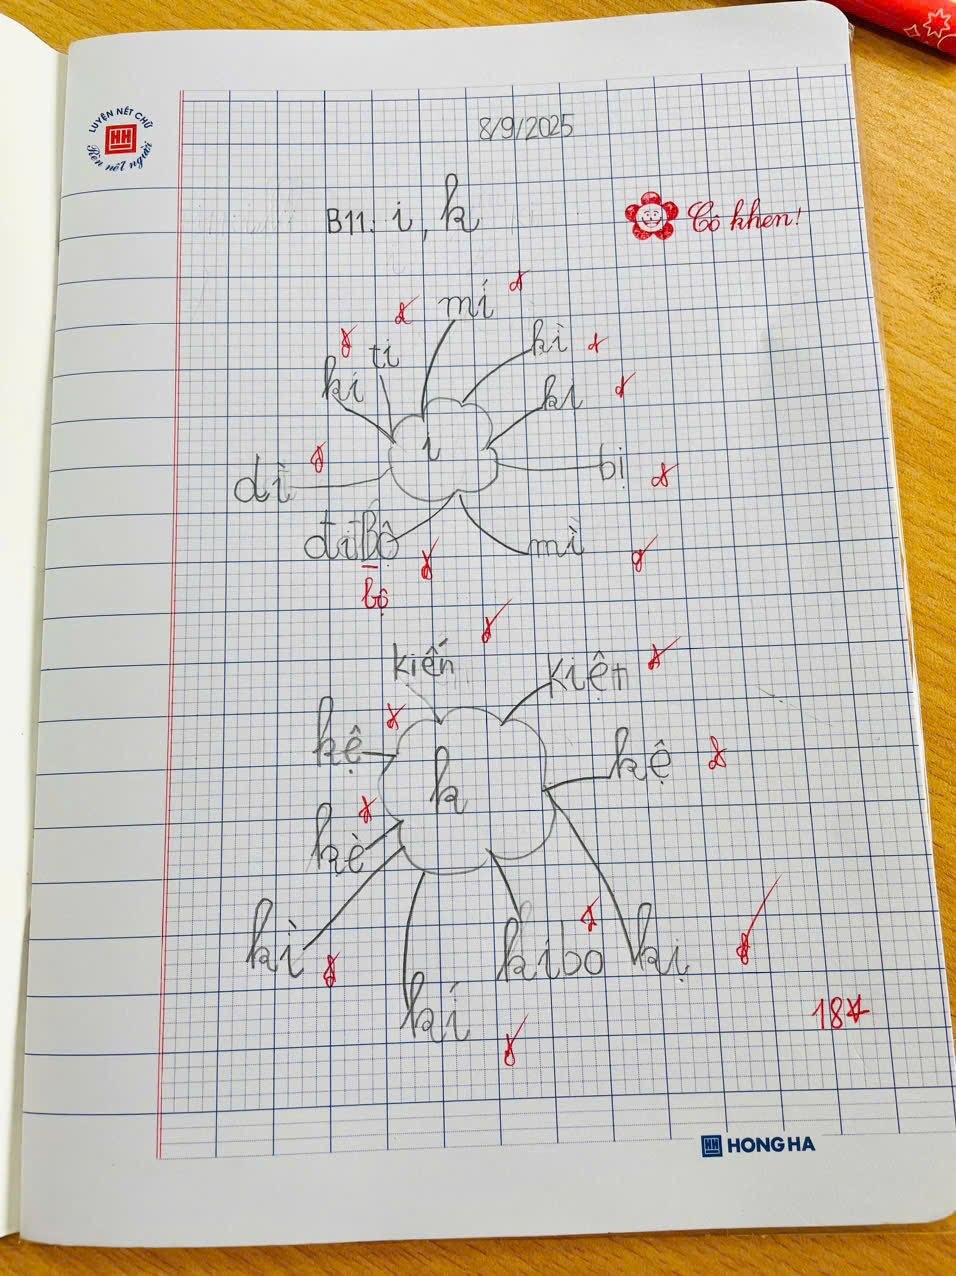 LUYỆN NÉT CHỮ
HH
Rèn nết người
8/9/2025
B11: i, k
Cô khen!
mí
ti
kì
kí
ki
i
dì
bị
đi Bộ
mì
bộ
kiến
kiện
kệ
kệ
k
kè
kì
ki bo
kị
kí
18
HH HONG HA